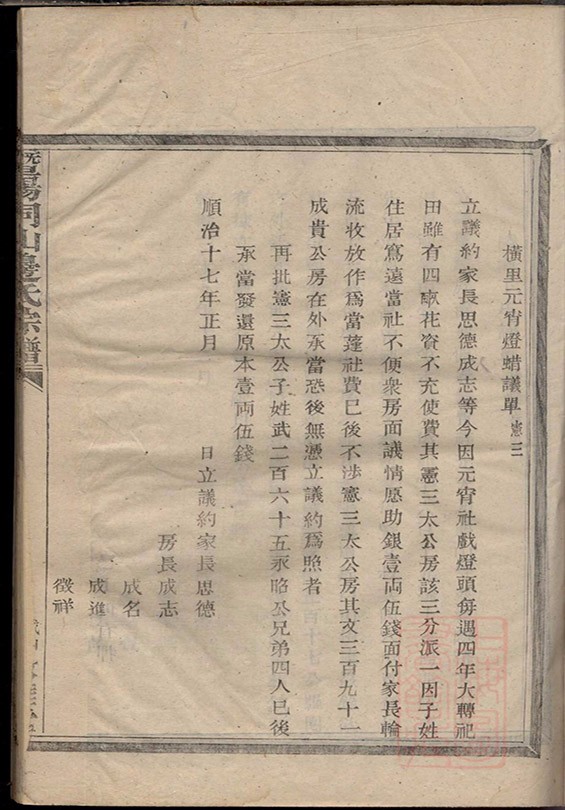 橫里元宵燈蜡議單 憲三
立議約家長思德成志等今因元宵社戲燈頭每遇四年大轉祀
田雖有四畝花資不充使費其憲三太公房該三分派一因子姓
住居寫遠當社不便衆房面議情愿助銀壹両伍錢面付家長輪
流收放作爲當蓬社費巳後不涉憲三太公房其文三百九十一
成貴公房在外承當恐後無憑立議約爲照者
再批憲三太公子姓武二百六十五承昭公兄弟四人巳後
承當發還原本壹両伍錢
順治十七年正月 日立議約家長思德
房長成志
成名
成進
徵祥
暨陽同山邊氏宗譜